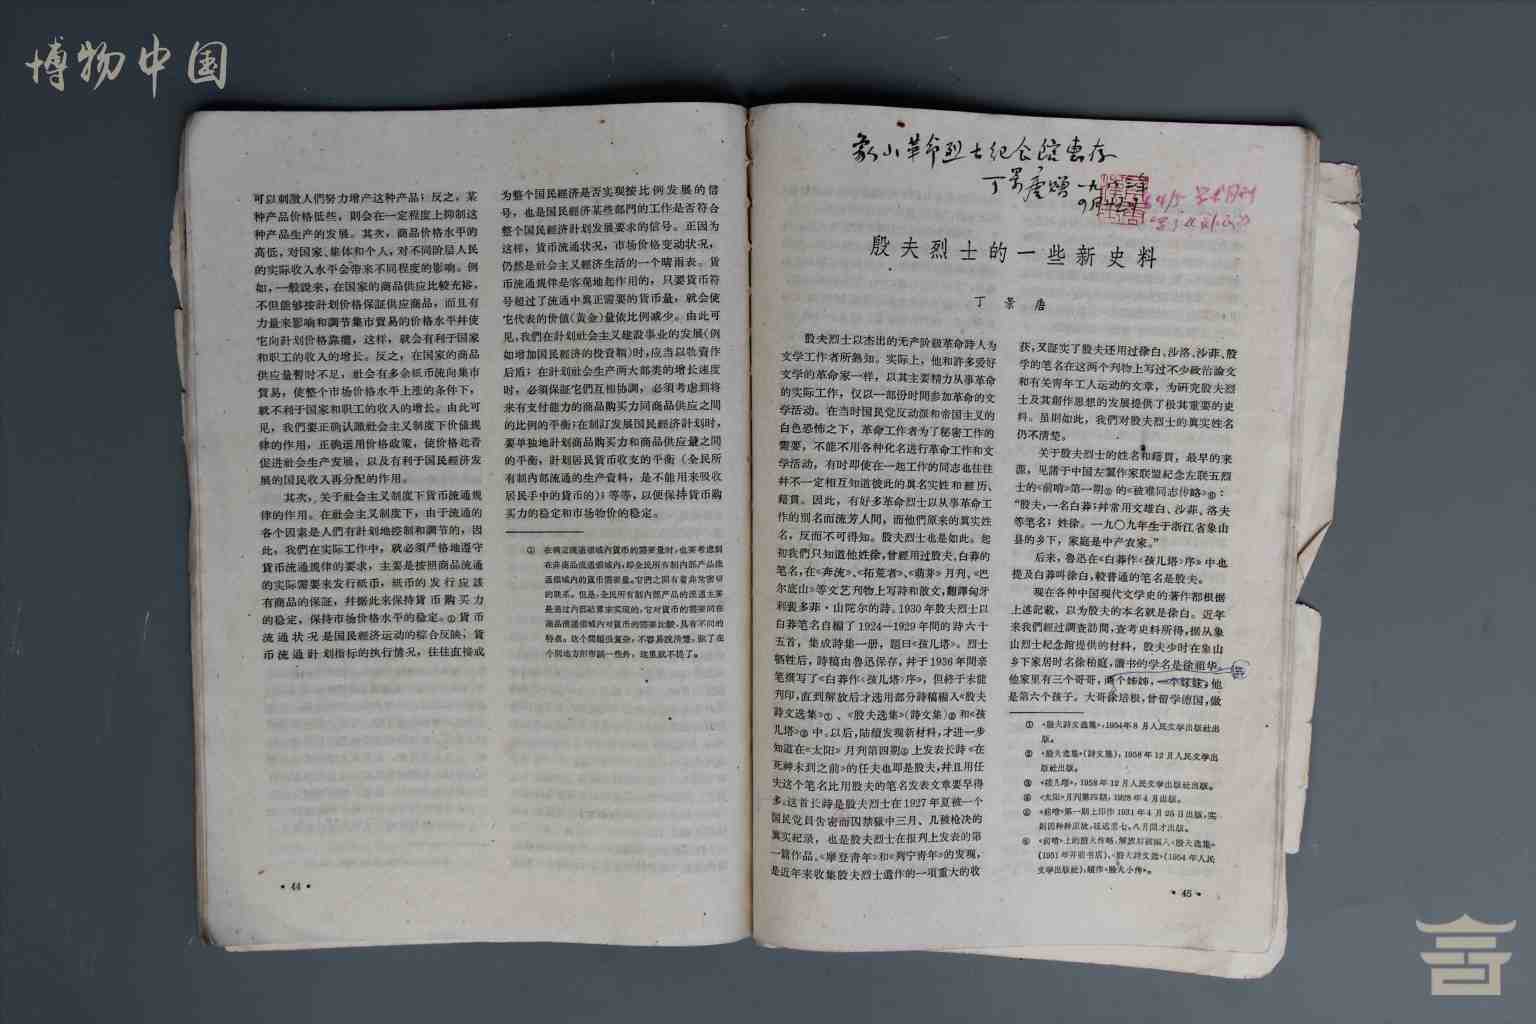 博物中国
可以刺激人們努力增产这种产品；反之，某
种产品价格低些，則会在一定程度上抑制这
种产品生产的发展。其次，商品价格水平的
高低，对国家、集体和个人，对不同阶层人民
的实际收入水平会带来不同程度的影响。例
如，一般說来，在国家的商品供应比較充裕，
不但能够按計划价格保証供应商品，而且有
力量来影响和調节集市貿易的价格水平幷使
它向計划价格靠攏，这样，就会有利于国家
和职工的收入的增长。反之，在国家的商品
供应量暫时不足，社会有多余紙币流向集市
貿易，使整个市场价格水平上涨的条件下，
就不利于国家和职工的收入的增长。由此可
見，我們要正确认識社会主义制度下价值規
律的作用，正确运用价格政策，使价格起着
促进社会生产发展，以及有利于国民經济发
展的国民收入再分配的作用。
其次，关于社会主义制度下貨币流通規
律的作用。在社会主义制度下，由于流通的
各个因素是人們有計划地控制和調节的，因
此，我們在实际工作中，就必須严格地遵守
貨币流通規律的要求，主要是按照商品流通
的实际需要来发行紙币，紙币的发行应該
有商品的保証，幷据此来保持貨币购买力
的稳定，保持市场价格水平的稳定。①貨币
流通状况是国民經济运动的綜合反映，貨
币流通計划指标的执行情况，往往直接成
为整个国民經济是否实現按比例发展的信
号，也是国民經济某些部門的工作是否符合
整个国民經济計划发展要求的信号。正因为
这样，貨币流通状况，市场价格变动状况，
仍然是社会主义經济生活的一个晴雨表。貨
币流通規律是客观地起作用的，只要貨币符
号超过了流通中真正需要的貨币量，就会使
它代表的价值(黄金)量依比例减少。由此可
見，我們在計划社会主义建設事业的发展(例
如增加国民經济的投資額)时，应当以物資作
后盾；在計划社会生产两大部类的增长速度
时，必須保証它們互相协調，必須考虑到将
来有支付能力的商品购买力同商品供应之間
的比例的平衡；在制訂发展国民經济計划时，
要单独地計划商品购买力和商品供应量之間
的平衡，計划居民貨币收支的平衡（全民所
有制内部流通的生产資料，是不能用来吸收
居民手中的貨币的)；等等，以便保持貨币购
买力的稳定和市场物价的稳定。
① 在确定流通领域内貨币的需要量时，也要考虑到
在非商品流通领域内，即全民所有制内部产品流
通领域内的貨币需要量。它們之間有着非常密切
的联系。但是，全民所有制内部产品的流通主要
是通过内部結算来实现的，它对貨币的需要同在
商品流通领域内对貨币的需要比較，具有不同的
特点。这个問題很复杂，不容易說清楚，除了在
个别地方附带談一些外，这里就不提了。
· 44 ·
象山革命烈士纪念馆惠存
丁景唐赠 一九八三年
殷夫烈士的一些新史料
丁景唐
殷夫烈士以杰出的无产阶級革命詩人为
文学工作者所熟知。实际上，他和許多爱好
文学的革命家一样，以其主要精力从事革命
的实际工作，仅以一部份时間参加革命的文
学活动。在当时国民党反动派和帝国主义的
白色恐怖之下，革命工作者为了秘密工作的
需要，不能不用各种化名进行革命工作和文
学活动，有时即使在一起工作的同志也往往
幷不一定相互知道彼此的真名实姓和經历、
籍貫。因此，有好多革命烈士以从事革命工
作的别名而流芳人間，而他們原来的真实姓
名，反而不可得知。殷夫烈士也是如此。起
初我們只知道他姓徐，曾經用过殷夫、白莽的
笔名，在《奔流》、《拓荒者》、《萌芽》月刊、《巴
尔底山》等文艺刊物上写詩和散文，翻譯匈牙
利裴多菲·山陀尔的詩。1930年殷夫烈士以
白莽笔名自編了1924—1929年間的詩六十
五首，集成詩集一册，題曰《孩儿塔》。烈士
牺牲后，詩稿由魯迅保存，幷于1936年間亲
笔撰写了《白莽作〈孩儿塔〉序》，但終于未能
刊印，直到解放后才选用部分詩稿輯入《殷夫
詩文选集》①、《殷夫选集》(詩文集)②和《孩
儿塔》③中。以后，陆續发現新材料，才进一步
知道在《太阳》月刊第四期④上发表长詩《在
死神未到之前》的任夫也即是殷夫，幷且用任
夫这个笔名比用殷夫的笔名发表文章要早得
多。这首长詩是殷夫烈士在1927年夏被一个
国民党員告密而囚禁獄中三月、几被枪决的
真实紀录，也是殷夫烈士在报刊上发表的第
一篇作品。《摩登青年》和《列宁青年》的发現，
是近年来收集殷夫烈士遺作的一項重大的收
获，又証实了殷夫还用过徐白、沙洛、沙菲、殷
学的笔名在这两个刊物上写过不少政治論文
和有关青年工人运动的文章，为研究殷夫烈
士及其創作思想的发展提供了极其重要的史
料。虽则如此，我們对殷夫烈士的真实姓名
仍不清楚。
关于殷夫烈士的姓名和籍貫，最早的来
源，見諸于中国左翼作家联盟紀念左联五烈
士的《前哨》第一期⑤的《被难同志传略》⑥：
“殷夫，一名白莽；幷常用文雄白、沙菲、洛夫
等笔名；姓徐。一九〇九年生于浙江省象山
县的乡下，家庭是中产农家。”
后来，魯迅在《白莽作〈孩儿塔〉序》中也
提及白莽叫徐白，較普通的笔名是殷夫。
現在各种中国現代文学史的著作都根据
上述記載，以为殷夫的本名就是徐白。近年
来我們經过調查訪問，查考史料所得，据从象
山烈士紀念館提供的材料，殷夫少时在象山
乡下家居时名徐柏庭，讀书的学名是徐祖华。
他家里有三个哥哥，两个姊姊，一个妹妹，他
是第六个孩子。大哥徐培根，曾留学德国，做
① 《殷夫詩文选集》，1954年8月人民文学出版社出
版。
② 《殷夫选集》(詩文集)，1958年12月人民文学出
版社出版。
③ 《孩儿塔》，1958年12月人民文学出版社出版。
④ 《太阳》月刊第四期，1928年4月出版。
⑤ 《前哨》第一期上印作1931年4月25日出版，实
則因种种压放，延迟至七、八月間才出版。
⑥ 《前哨》上的殷夫传略，解放后被輯入《殷夫选集》
(1951年开明书店)、《殷夫詩文选》(1954年人民
文学出版社)，題作《殷夫小传》。
· 45 ·